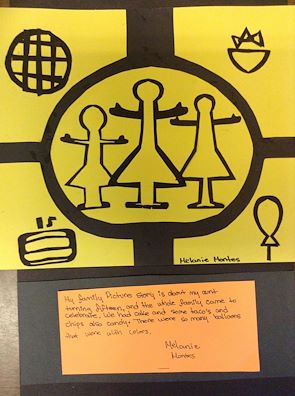 Melanie Montes
My family Pictures story is about my aunt
turning fifteen, and the whole family came to
celebrate. We had cake and some taco's and
chips also candy. There were so many balloons
that were with colors.
Melanie
Montes